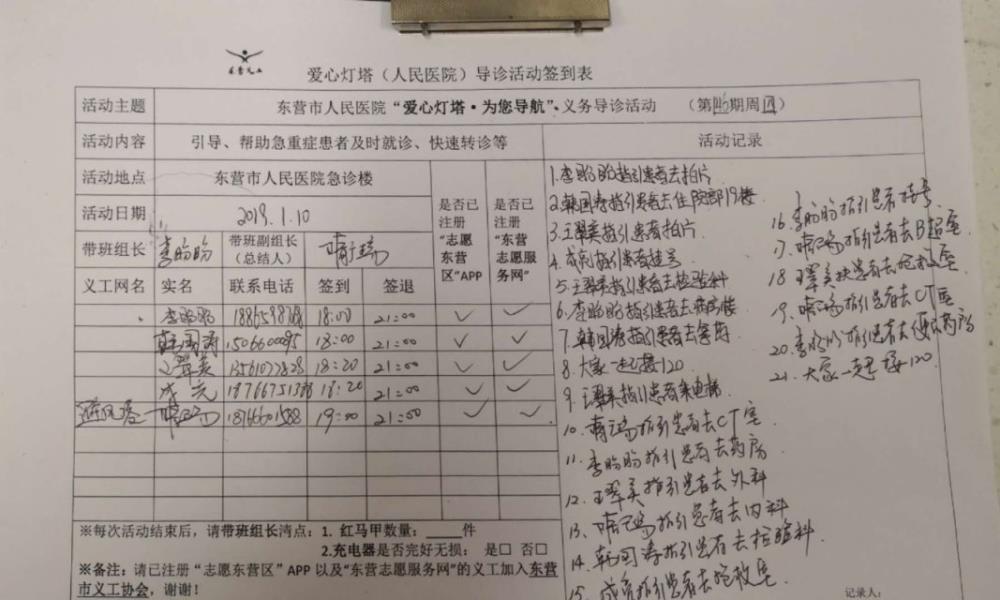 东营义工
爱心灯塔（人民医院）导诊活动签到表
活动主题 东营市人民医院“爱心灯塔·为您导航”·义务导诊活动 （第 期周四）
活动内容 引导、帮助急重症患者及时就诊、快速转诊等 活动记录
活动地点 东营市人民医院急诊楼 是否已注册“志愿东营区”APP 是否已注册“东营志愿服务网”
活动日期 2019.1.10
带班组长 李盼盼 带班副组长（总结人）
义工网名 实名 联系电话 签到 签退
李盼盼 18:00 21:00 ✓ ✓
韩国涛 18:00 21:00 ✓ ✓
王翠美 18:20 21:00 ✓ ✓
成亮 18:20 21:00 ✓ ✓
19:00 21:00 ✓ ✓
※每次活动结束后，请带班组长清点：1. 红马甲数量：____件
2.充电器是否完好无损： 是□ 否□
※备注：请已注册“志愿东营区”APP 以及“东营志愿服务网”的义工加入东营
市义工协会，谢谢！
1.李盼盼指引患者去拍片
2.韩国涛指引患者去住院部19楼
3.王翠美指引患者拍片
4.成亮指引患者挂号
5.王翠美指引患者去检验科
6.李盼盼指引患者去病房楼
7.韩国涛指引患者去
8.大家一起接120
9.王翠美指引患者乘电梯
10. 指引患者去CT室
11.李盼盼指引患者去药房
12.王翠美指引患者去外科
13. 指引患者去内科
14.韩国涛指引患者去检验科
15.成亮指引患者去抢救室
16.李盼盼指引患者挂号
17. 指引患者去B超室
18.王翠美 患者去抢救室
19. 指引患者去CT室
20.李盼盼指引患者去 药房
21.大家一起接120
记录人：